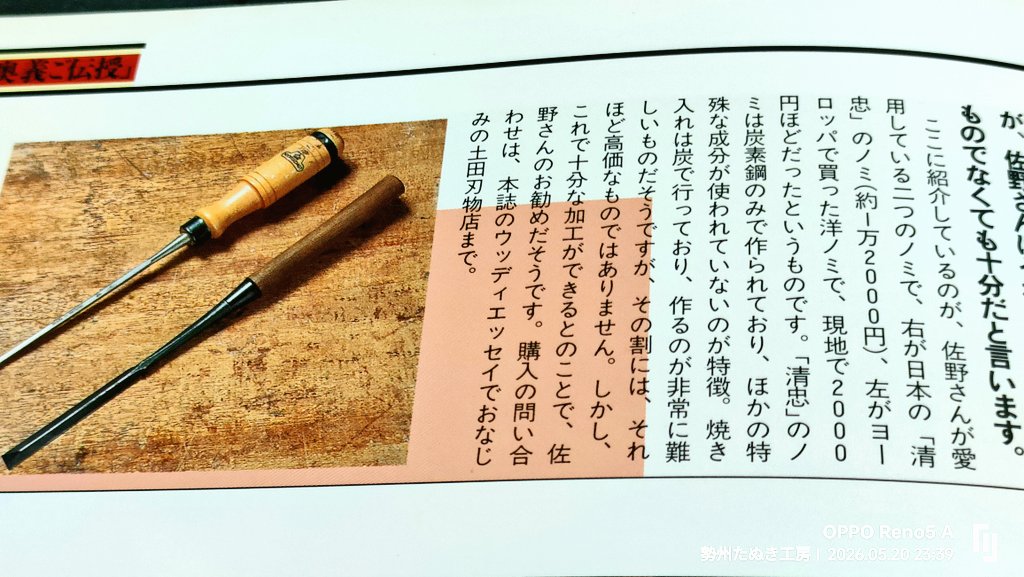 奥義ご伝授」
ものでなくても十分だと言います。
ここに紹介しているのが、佐野さんが愛
用している二つのノミで、右が日本の「清
忠」のノミ(約一万2000円)、左がヨー
ロッパで買った洋ノミで、現地で2000
円ほどだったというものです。「清忠」のノ
ミは炭素鋼のみで作られており、ほかの特
殊な成分が使われていないのが特徴。焼き
入れは炭で行っており、作るのが非常に難
しいものだそうですが、その割には、それ
ほど高価なものではありません。しかし、
これで十分な加工ができるとのことで、佐
野さんのお勧めだそうです。購入の問い合
わせは、本誌のウッディエッセイでおなじ
みの土田刃物店まで。
OPPO Reno5 A
勢州たぬき工房 | 2026.05.20 23:39